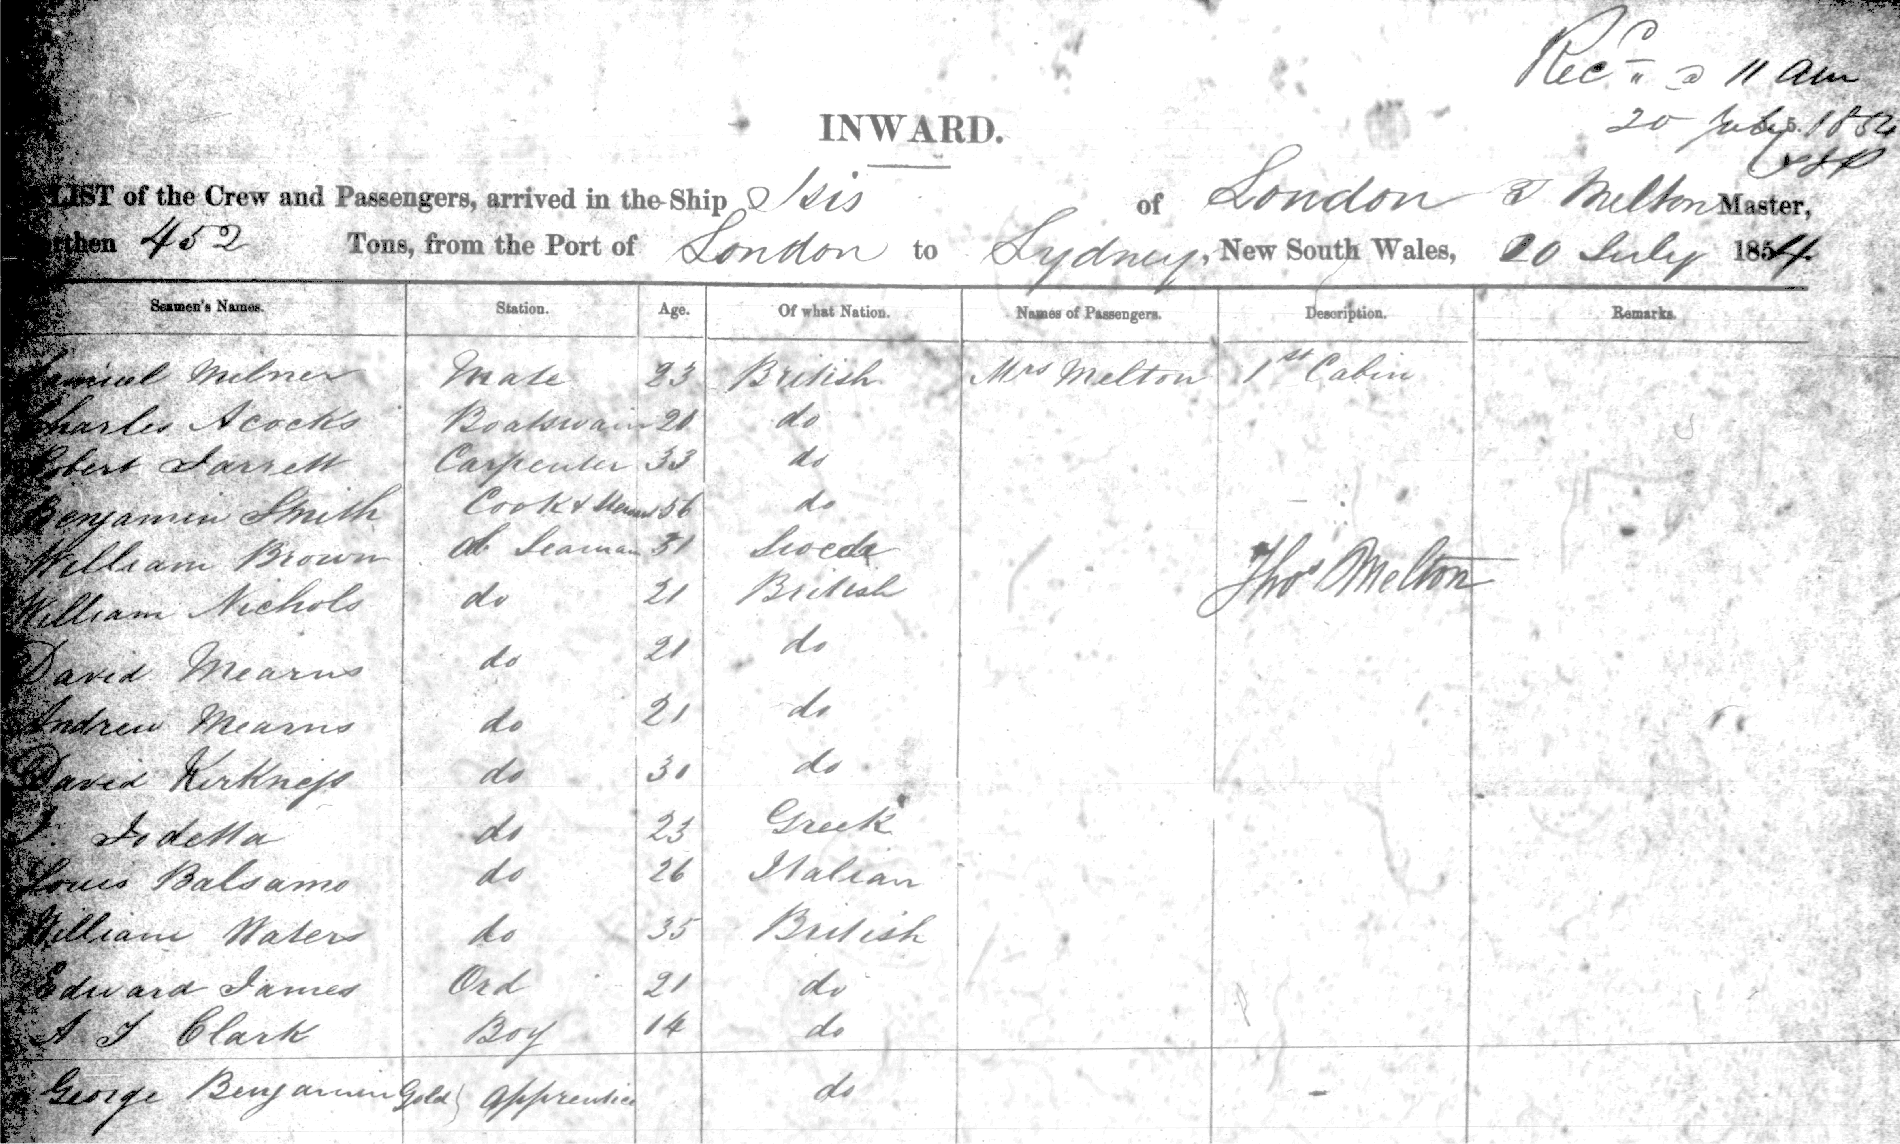 Rec @ 11 am
20 July 1854
INWARD.
LIST of the Crew and Passengers, arrived in the Ship Isis of London T Melton Master,
rthen 452 Tons, from the Port of London to Sydney, New South Wales, 20 July 1854.
Seamen's Names. Station. Age. Of what Nation. Names of Passengers. Description. Remarks.
Samuel Milner Mate 23 British Mrs Melton 1st Cabin
Charles Acocks Boatswain 21 do
Robert Jarrett Carpenter 33 do
Benjamin Smith Cook & 56 do
William Brown Ab Seaman 31 Swede
Thos Melton
William Nichols do 21 British
David Mearns do 21 do
Andrew Mearns do 21 do
David Kirkness do 30 do
do 23 Greek
Louis Balsamo do 26 Italian
William Waters do 35 British
Edward James Ord 21 do
A J Clark Boy 14 do
George Benjamin Gold } apprentice do